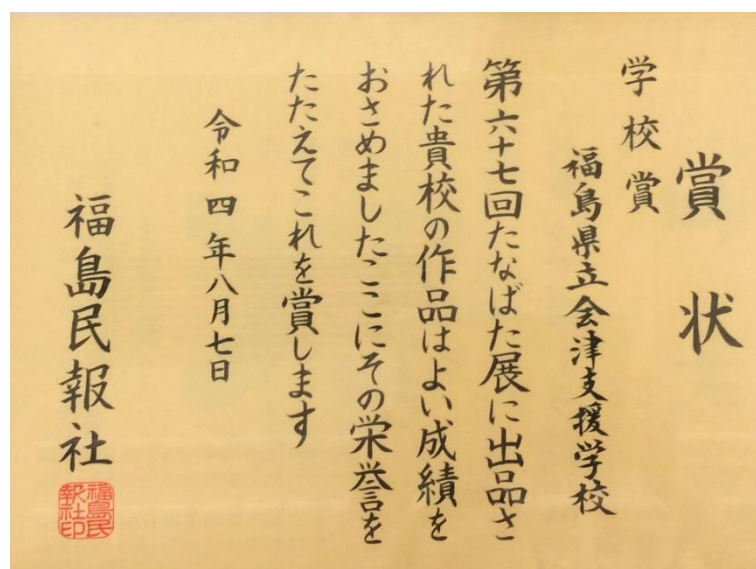 賞状
学校賞
福島県立会津支援学校
第六十七回たなばた展に出品さ
れた貴校の作品はよい成績を
おさめましたここにその栄誉を
たたえてこれを賞します
令和四年八月七日
福島民報社
福島民
報社印